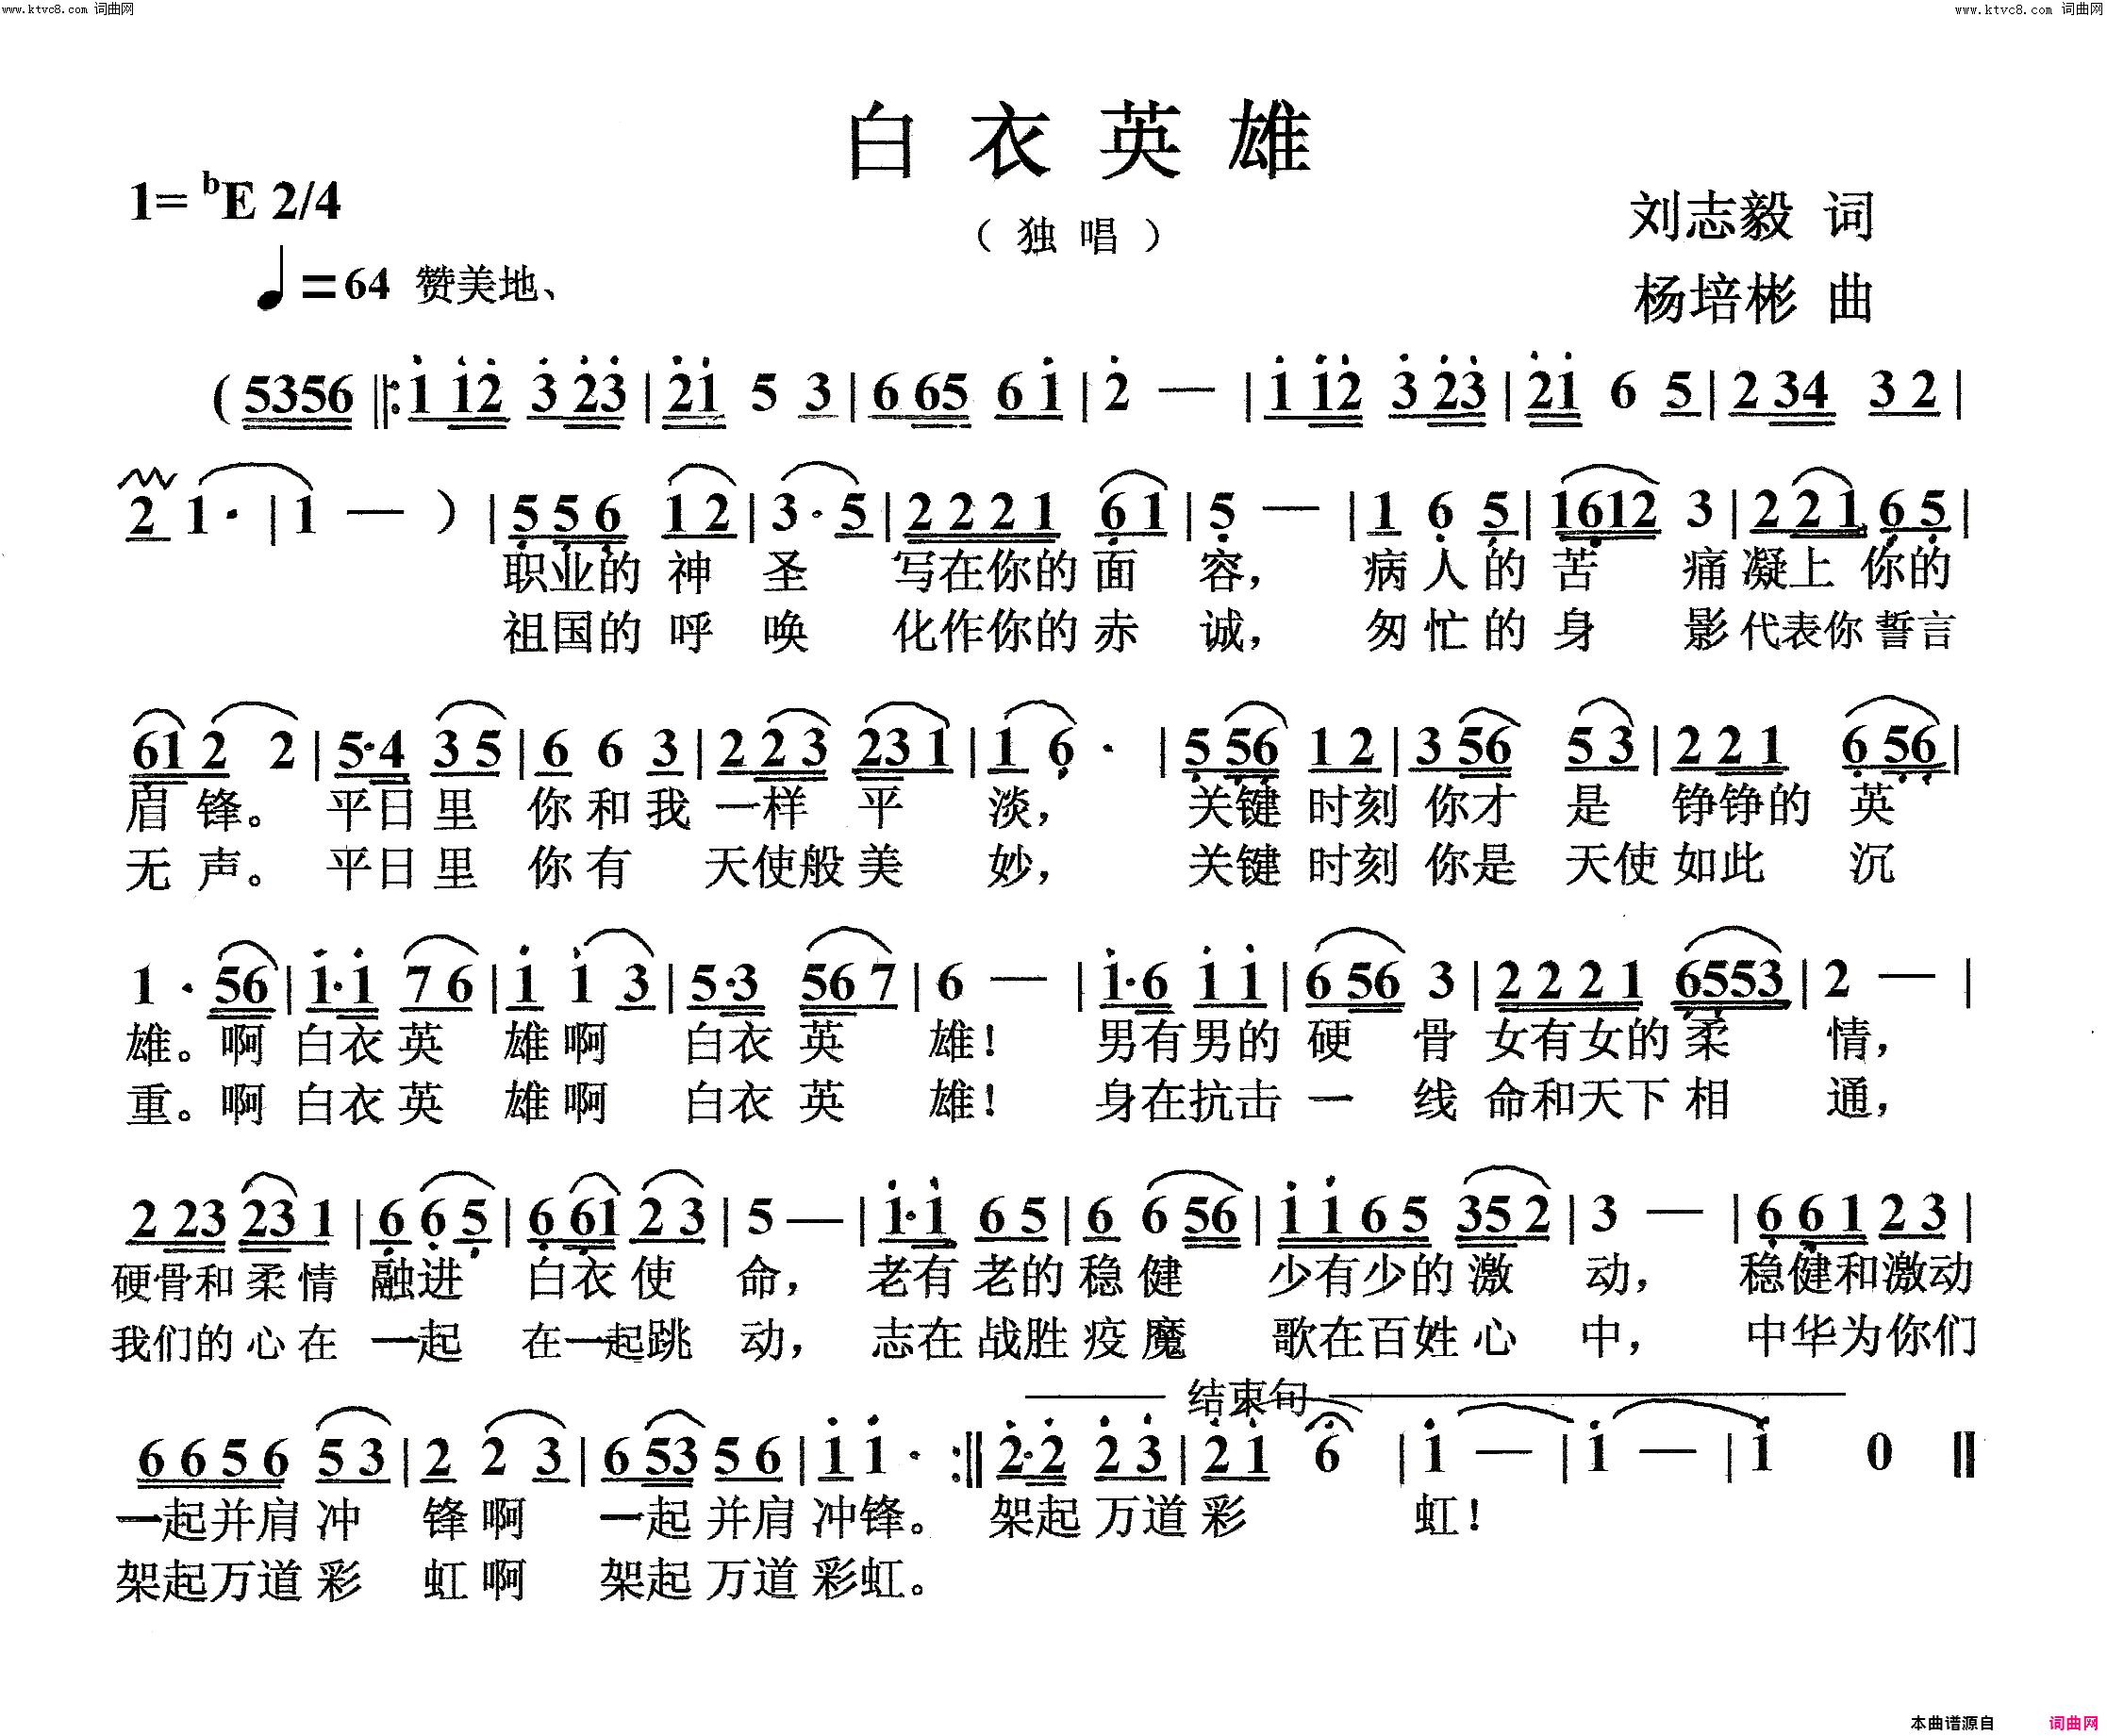 www.ktvc8.com 词曲网
www.ktvc8.com 词曲网
白衣英雄
1= ᵇE 2/4
（独唱）
刘志毅 词
♩=64 赞美地、
杨培彬 曲
( 5356 ‖: 1 12 3 23 | 21 5 3 | 6 65 6 1 | 2 — | 1 12 3 23 | 21 6 5 | 2 34 3 2 |
2 1· | 1 — ) | 5 5 6 1 2 | 3· 5 | 2 2 2 1 6 1 | 5 — | 1 6 5 | 1612 3 | 2 2 1 6 5 |
职业的 神 圣 写在你的 面 容， 病 人 的 苦 痛 凝上 你的
祖国的 呼 唤 化作你的 赤 诚， 匆 忙 的 身 影 代表你 誓言
61 2 2 | 5·4 3 5 | 6 6 3 | 2 2 3 23 1 | 1 6 · | 5 56 1 2 | 3 56 5 3 | 2 2 1 6 56 |
眉 锋。 平日 里 你 和 我 一样 平 淡， 关键 时刻 你才 是 铮铮的 英
无 声。 平日 里 你 有 天使般 美 妙， 关键 时刻 你是 天使 如此 沉
1 · 56 | 1·1 7 6 | 1 1 3 | 5·3 56 7 | 6 — | 1·6 1 1 | 6 56 3 | 2 2 2 1 6553 | 2 — |
雄。啊 白衣 英 雄 啊 白衣 英 雄！ 男有男的 硬 骨 女有女的 柔 情，
重。啊 白衣 英 雄 啊 白衣 英 雄！ 身在抗击 一 线 命和天下 相 通，
2 23 23 1 | 6 6 5 | 6 61 2 3 | 5 — | 1·1 6 5 | 6 6 56 | 1 1 6 5 35 2 | 3 — | 6 6 1 2 3 |
硬骨和 柔 情 融进 白衣 使 命， 老有 老的 稳 健 少有少的 激 动， 稳健和激动
我们的 心 在 一起 在一起跳 动， 志在 战胜 疫 魔 歌在百姓 心 中， 中华为你们
结束句
6 6 5 6 5 3 | 2 2 3 | 6 53 5 6 | 1 1 · :‖ 2·2 2 3 | 2 1 6 | 1 — | 1 — | 1 0 ‖
一起并肩 冲 锋 啊 一起 并肩 冲锋。 架起 万道 彩 虹！
架起万道 彩 虹 啊 架起 万道 彩虹。
本曲谱源自 词曲网